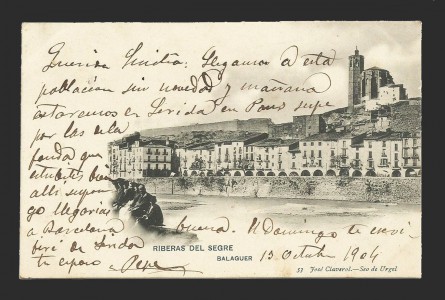 Querida Sinita: Llegamos a esta
población sin novedad y mañana
estaremos en Lerida en Pons supe
por las
fonda que
estubistes bien
alli supon
go llegarias
a Barcelona buena. El Domingo te escri
biré de Lerida 13 Octubre 1904
tu esposo Pepe
RIBERAS DEL SEGRE
BALAGUER
53 José Claverol.—Seo de Urgel